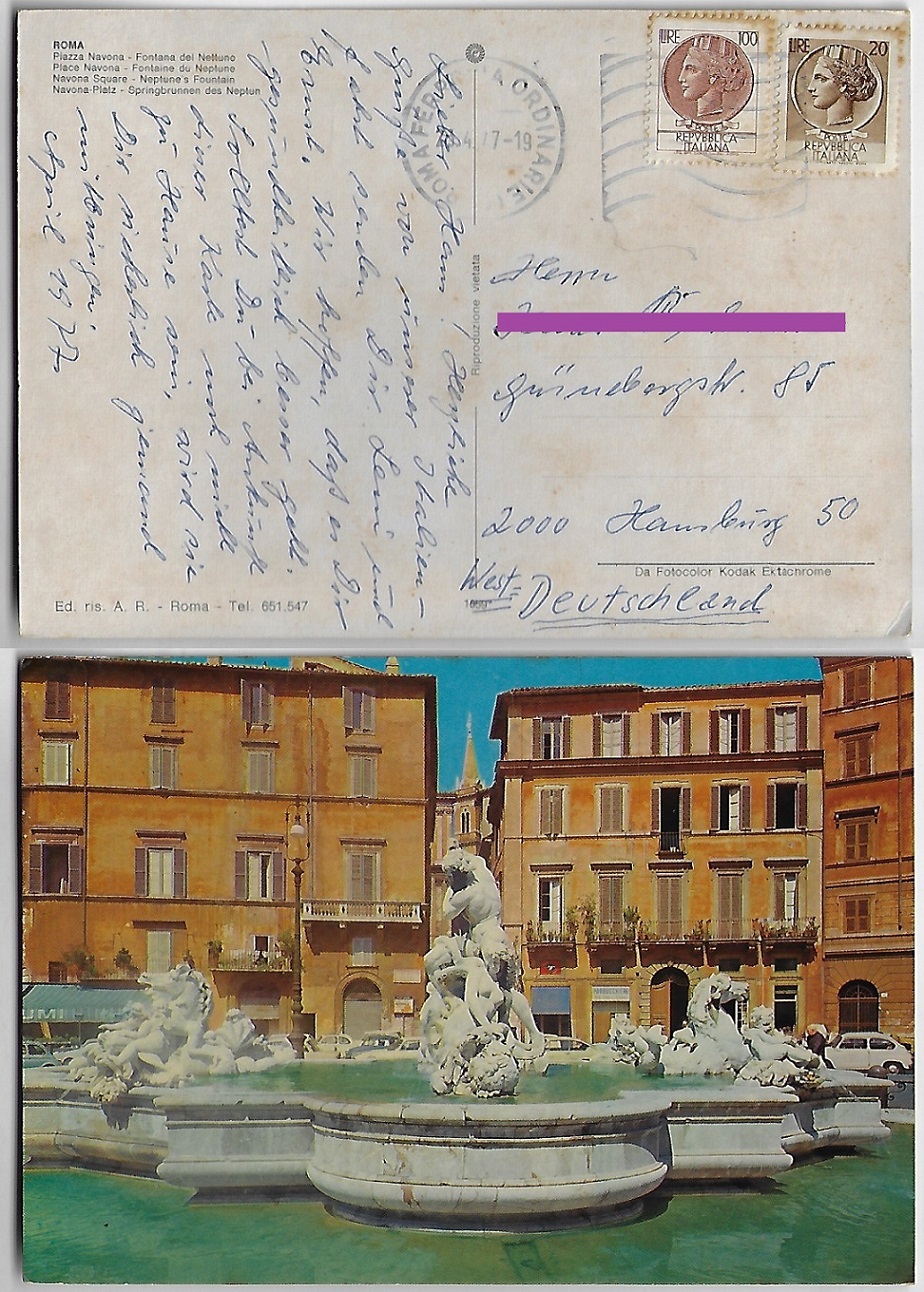 ROMA
Piazza Navona - Fontana del Nettuno
Place Navona - Fontaine du Neptune
Navona Square - Neptune's Fountain
Navona-Platz - Springbrunnen des Neptun
Lieber Hans! Herzliche
Grüße von unserer Italien-
fahrt senden Dir Leni und
Ernst. Wir hoffen, daß es Dir
gesundheitlich besser geht.
Solltest Du bei Ankunft
dieser Karte noch nicht
zu Hause sein, wird sie
Dir sicherlich jemand
mitbringen.
April 1977
ROMA FERR. A. ORDINARIE
4.77-19
LIRE 100
POSTE
REPVBBLICA
ITALIANA
LIRE 20
POSTE
REPVBBLICA
ITALIANA
Riproduzione vietata
Herrn
Grünebergstr. 85
2000 Hamburg 50
West-
Deutschland
Da Fotocolor Kodak Ektachrome
Ed. ris. A. R. - Roma - Tel. 651.547
UMI